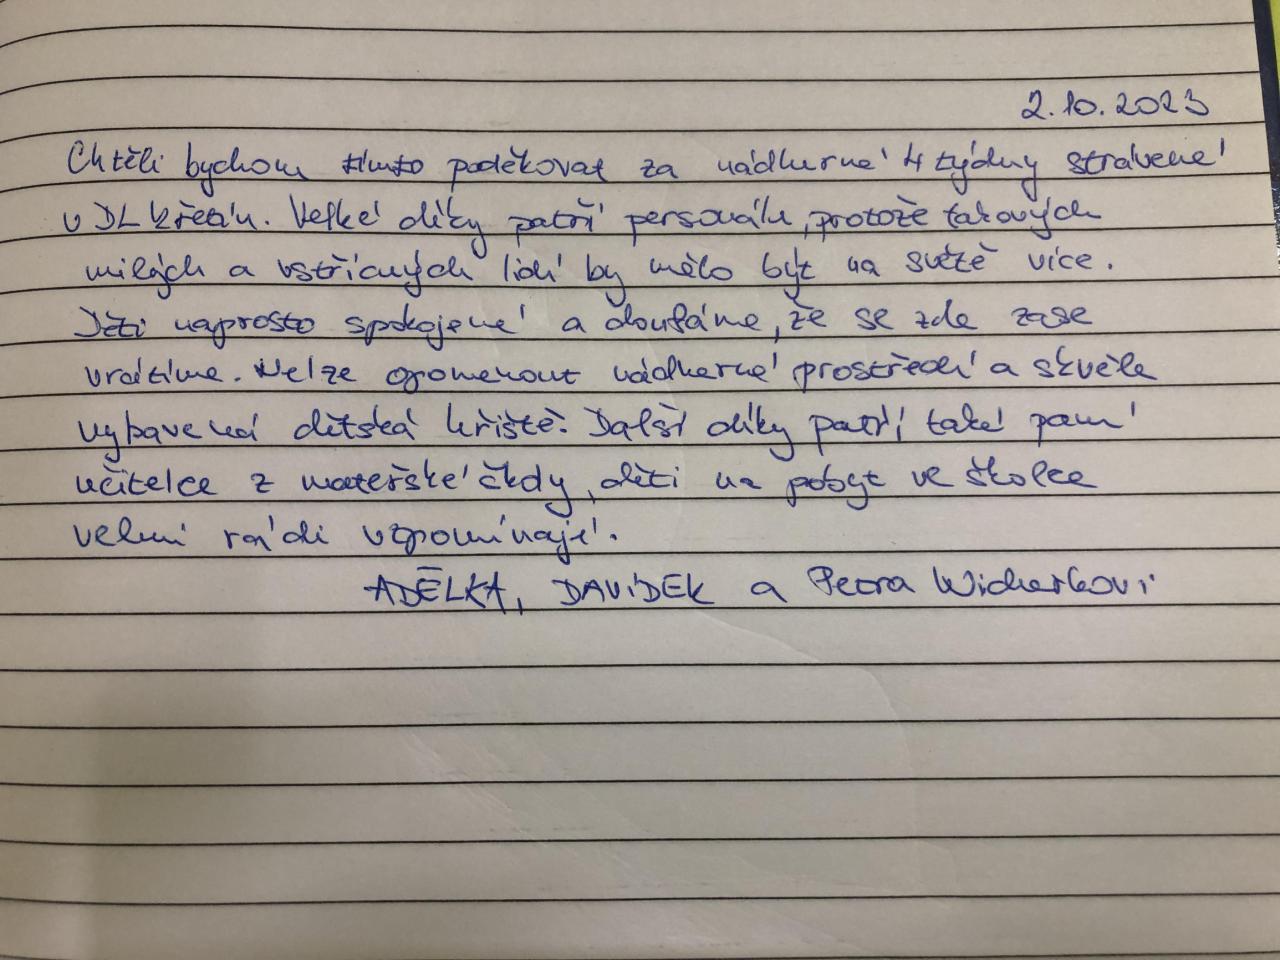 2.10.2023
Chtěli bychom tímto poděkovat za nádherné 4 týdny strávené
v DL Křetín. Velké díky patří personálu, protože takových
milých a vstřícných lidí by mělo být na světě více.
Děti naprosto spokojené a doufáme, že se zde zase
vrátíme. Nelze opomenout nádherné prostředí a skvěle
vybavená dětská hřiště. Další díky patří také paní
učitelce z mateřské školy, děti na pobyt ve školce
velmi rádi vzpomínají.
ADÉLKA, DAVÍDEK a Petra